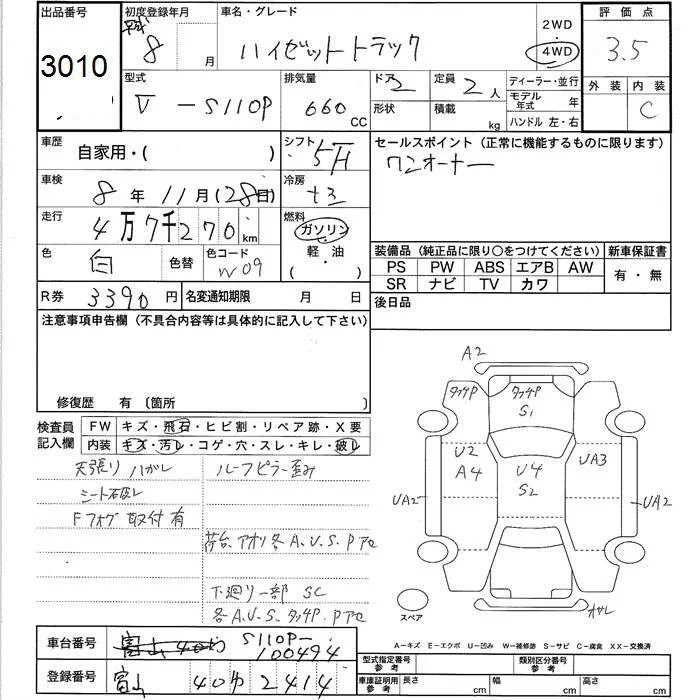 出品番号 初度登録年月 車名・グレード 2WD 評価点
3010 平成 8 月 ハイゼットトラック 4WD 3.5
型式 排気量 ドア 2 定員 2人 ディーラー・並行 外装 内装
V-S110P 660 CC 形状 積載 kg モデル年式 年 C
ハンドル 左・右
車歴 自家用・( ) シフト 5F セールスポイント(正常に機能するものに限ります)
ワンオーナー
車検 8年11月(28日) 冷房
走行 4万7千270km 燃料 ガソリン
軽・油
・( )
色 白 色替 色コード W09
装備品(純正品に限り○をつけてください) 新車保証書
PS PW ABS エアB AW 有・無
SR ナビ TV カワ
R券 3390円 名変通知期限 月 日 後日品
注意事項申告欄(不具合内容等は具体的に記入して下さい)
修復歴 有 〔箇所 〕
検査員記入欄 FW キズ・飛石・ヒビ割・リペア跡・X要
内装 キズ・汚レ・コゲ・穴・スレ・キレ・破レ
天張りハガレ ルーフピラー歪み
シート破レ
Fフォグ取付有 荷台、アオリ各A.U.S.Pアセ
下廻り一部SC
各A.U.S.タッチP.Pアセ
A2
タッチP タッチP
S1
U2 U4 UA3
A4 S2
UA2 UA2
スペア
A-キズ E-エクボ U-凹み W-補修跡 S-サビ C-腐食 XX-交換済
車台番号 S110P-100494
登録番号 富山 40 2414
型式指定番号 参考 類別区分番号 参考
車庫証明用 参考 長さ cm 幅 cm 高さ cm